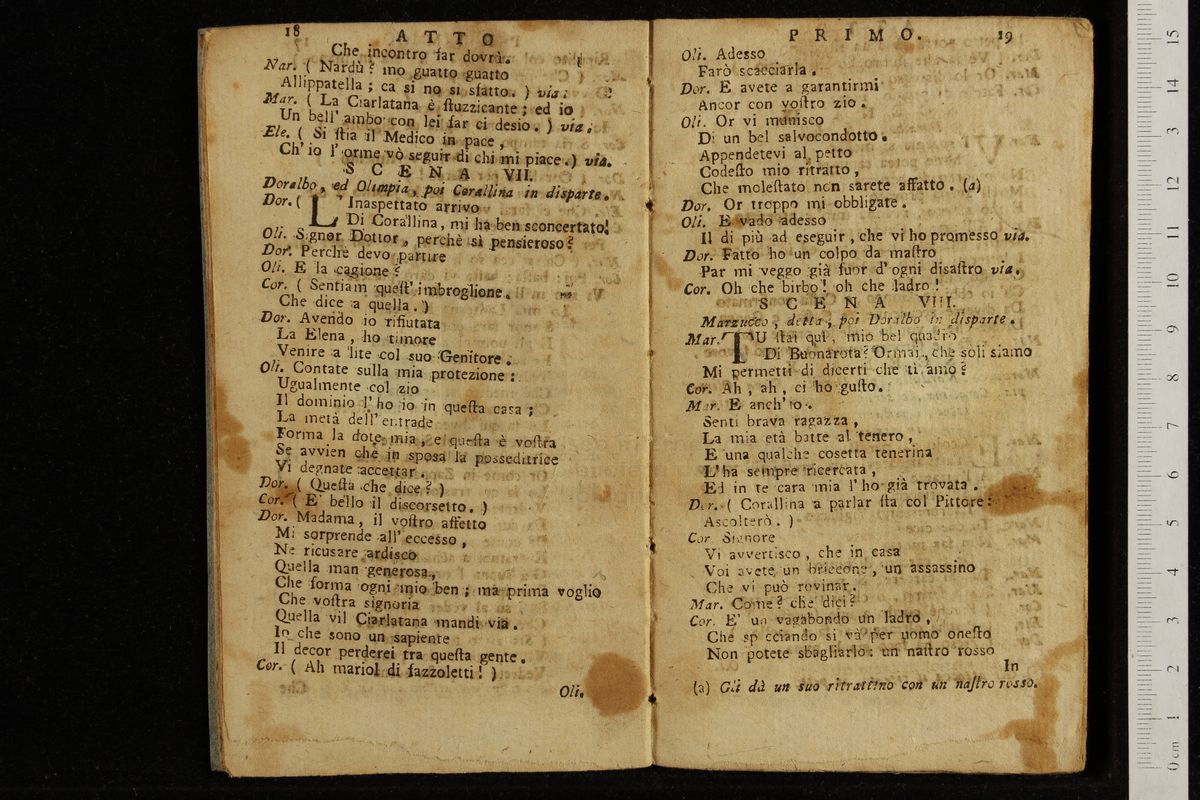 18 ATTO
Che incontro far dovrà.
Nar. ( Nardù ? mo guatto guatto
Allippatella ; ca si no si sfatto. ) via.
Mar. ( La Ciarlatana è ſtuzzicante ; ed io
Un bell' ambo con lei far ci desio. ) via.
Ele. ( Si ſtia il Medico in pace ,
Ch' io l' orme vò seguir di chi mi piace.) via.
SCENA VII.
Doralbo, ed Olimpia, poi Corallina in disparte.
Dor. ( L' Inaspettato arrivo
Di Corallina, mi ha ben sconcertato!
Oli. Signor Dottor, perchè sì pensieroso?
Dor. Perchè devo partire
Oli. E la cagione ?
Cor. ( Sentiam queſt' imbroglione.
Che dice a quella. )
Dor. Avendo io rifiutata
La Elena , ho timore
Venire a lite col suo Genitore .
Oli. Contate sulla mia protezione :
Ugualmente col zio
Il dominio l' ho io in queſta casa ;
La metà dell' entrade
Forma la dote mia , e queſta è voſtra
Se avvien che in sposa la posseditrice
Vi degnate accettar .
Dor. ( Queſta che dice ? )
Cor. ( E' bello il discorsetto. )
Dor. Madama, il voſtro affetto
Mi sorprende all' eccesso ,
Ne ricusare ardisco
Quella man generosa,
Che forma ogni mio ben ; ma prima voglio
Che voſtra signoria
Quella vil Ciarlatana mandi via .
Io che sono un sapiente
Il decor perderei tra queſta gente.
Cor. ( Ah mariol di fazzoletti ! )
Oli.
PRIMO. 19
Oli. Adesso
Farò scacciarla .
Dor. E avete a garantirmi
Ancor con voſtro zio .
Oli. Or vi munisco
Di un bel salvocondotto.
Appendetevi al petto
Codeſto mio ritratto ,
Che moleſtato non sarete affatto . (a)
Dor. Or troppo mi obbligate .
Oli. E vado adesso
Il di più ad eseguir , che vi ho promesso via.
Dor. Fatto ho un colpo da maſtro
Par mi veggo già fuor d' ogni disaſtro via.
Cor. Oh che birbo ! oh che ladro !
SCENA VIII.
Marzucco , detta , poi Doralbo in disparte .
Mar. TU ſtai quì , mio bel quadro
Di Buonarota? Ormai, che soli siamo
Mi permetti di dicerti che ti amo ?
Cor. Ah , ah , ci ho guſto.
Mar. E anch' io .
Senti brava ragazza ,
La mia età batte al tenero ,
E una qualche cosetta tenerina
L' ha sempre ricercata ,
Ed in te cara mia l' ho già trovata .
Dor. ( Corallina a parlar ſta col Pittore :
Ascolterò . )
Cor. Signore
Vi avvertisco , che in casa
Voi avete un briccone , un assassino
Che vi può rovinar .
Mar. Come ? che dici ?
Cor. E' un vagabondo un ladro ,
Che sp cciando si và per uomo oneſto
Non potete sbagliarlo : un naſtro rosso
In
(a) Gli dà un suo ritrattino con un naſtro rosso.